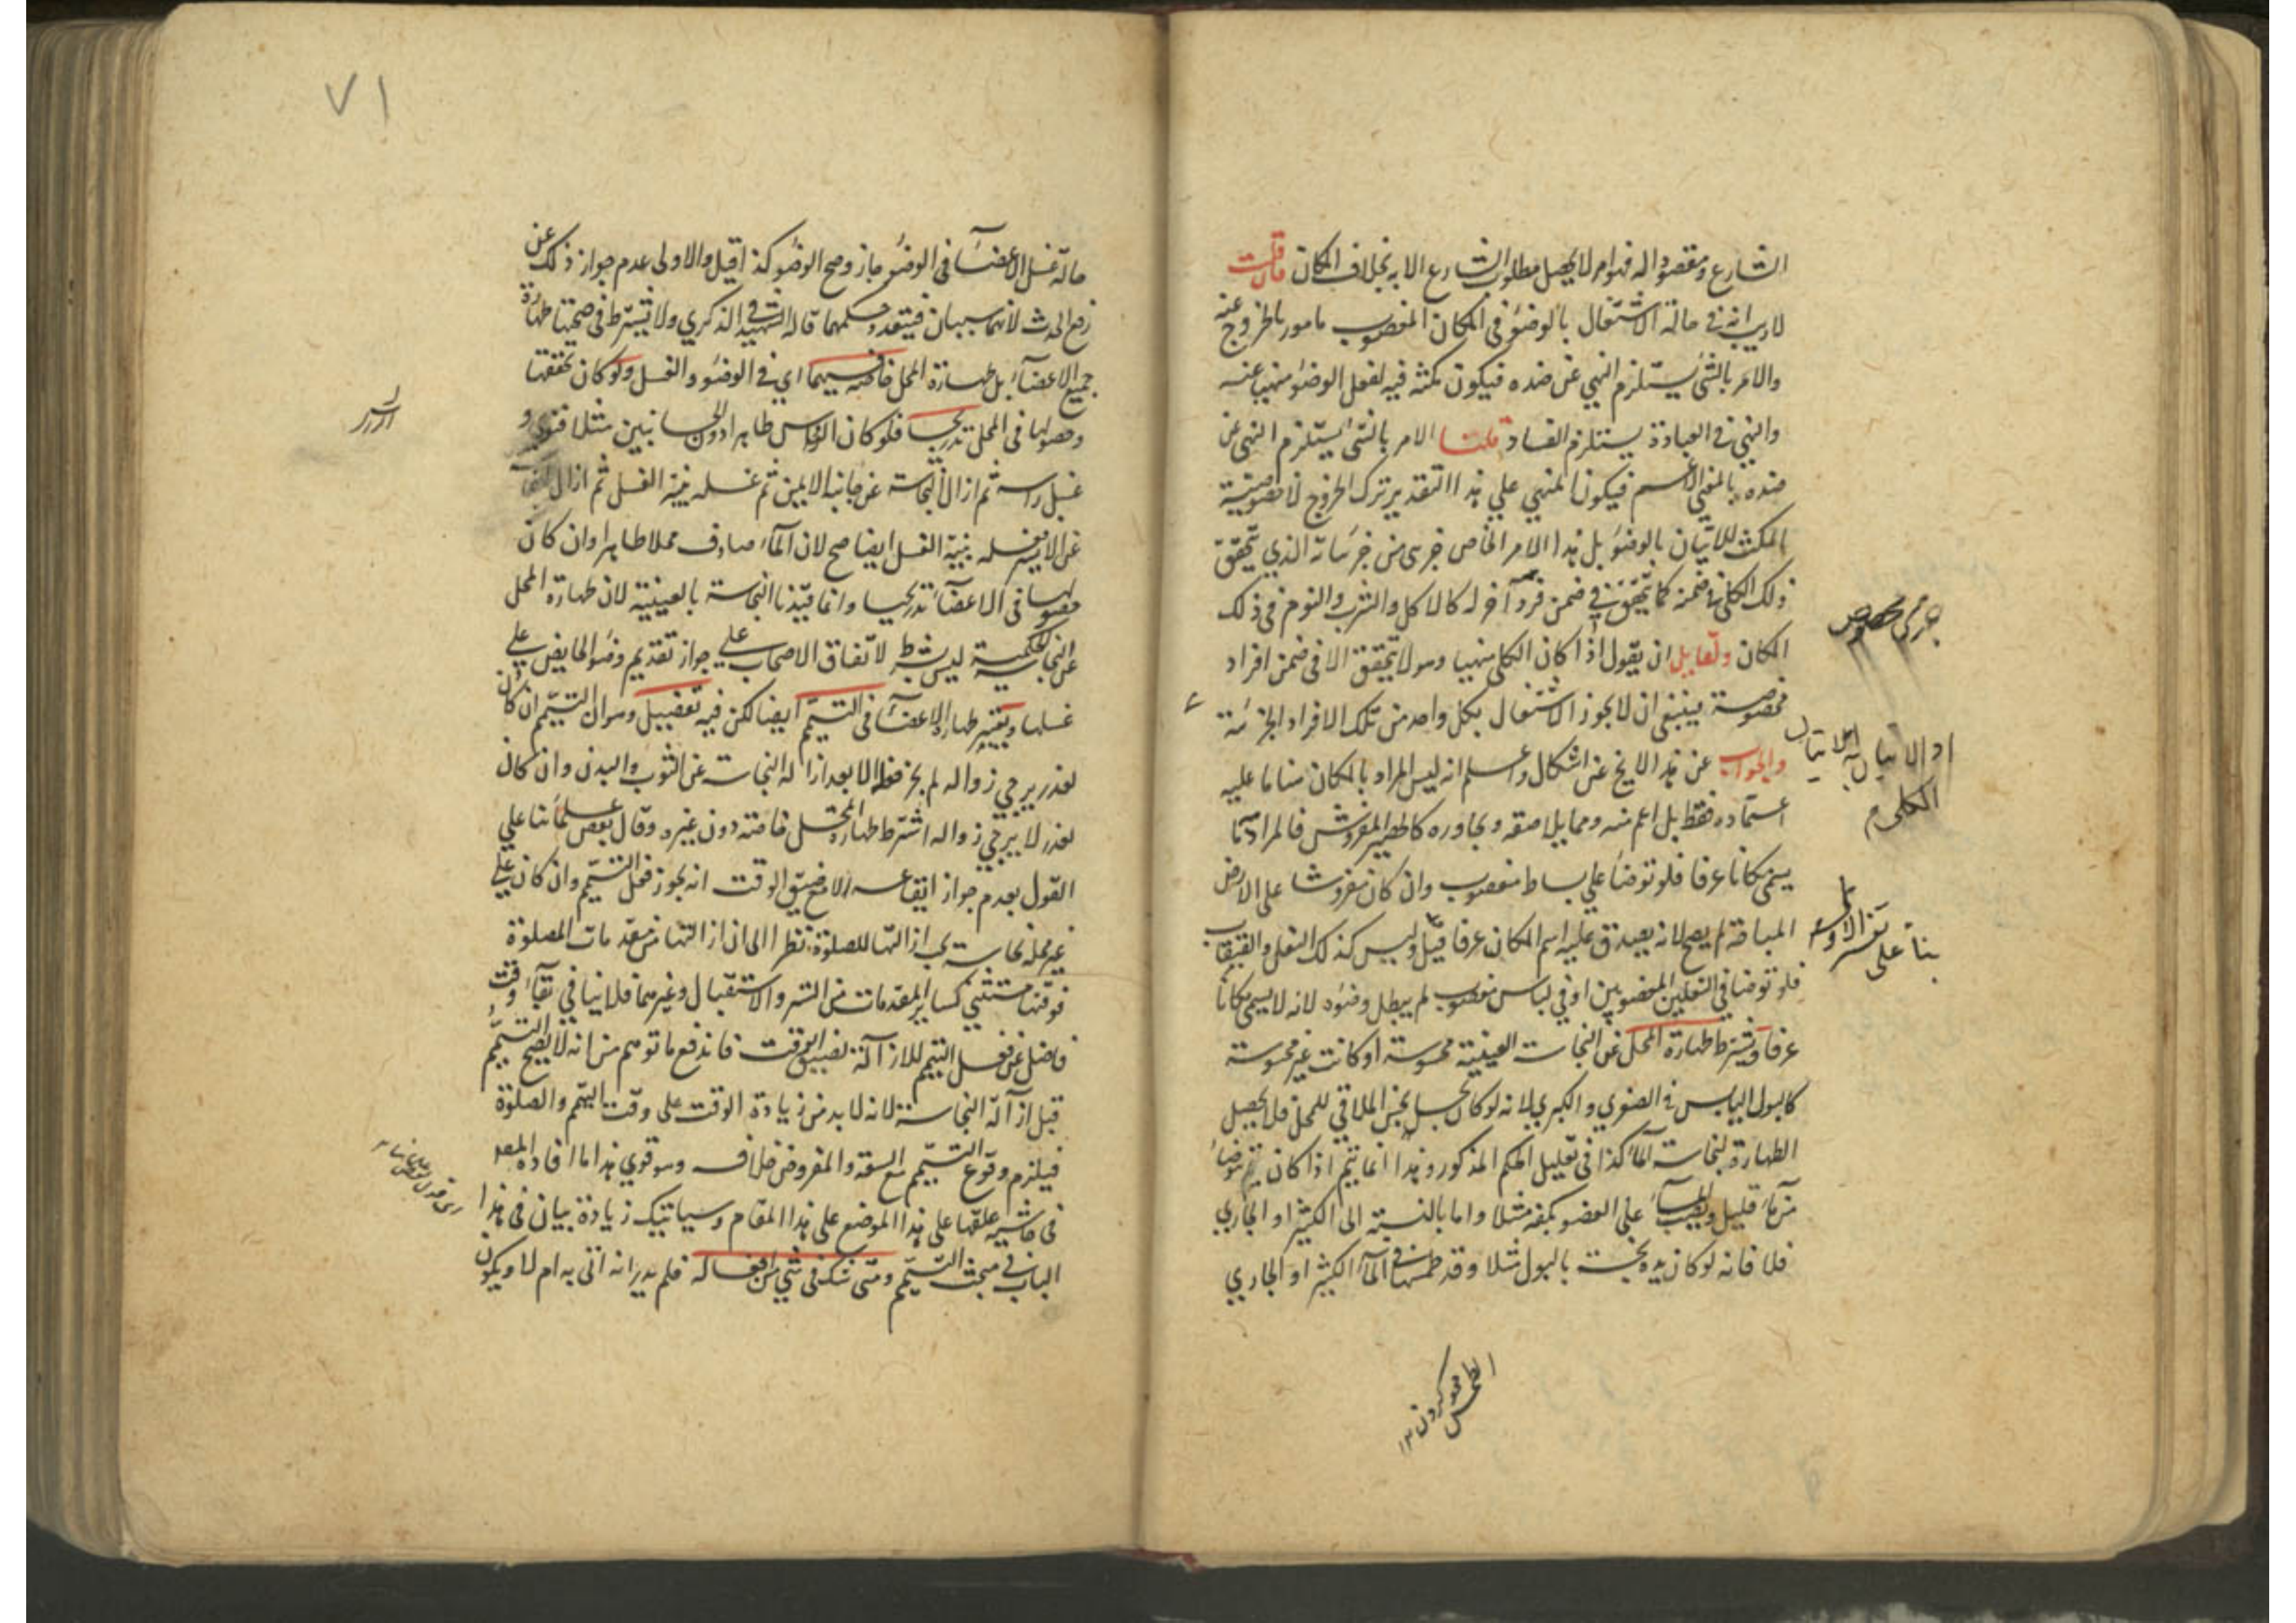 الشارع ومقصوداله فهوامر لايحصل مطلوب الشارع الا به بخلاف المكان فان قلت
لاريب انه في حالة الاشتغال بالوضؤ في المكان المغصوب مامور بالخروج عنه
والامر بالشئ يستلزم النهي عن ضده فيكون مكثه فيه لفعل الوضؤ منهيا عنه
والنهي في العبادة يستلزم الفساد قلنا الامر بالشئ يستلزم النهي عن
ضده بالمعني الاعم فيكون المنهي علي هذا التقدير ترك الخروج لا خصوصية
المكث للاتيان بالوضؤ بل هذا الامر الخاص جزئي من جزئياته الذي يتحقق
ذلك الكلي في ضمنه كما يتحقق في ضمن فرد آخر له كالاكل والشرب والنوم في ذلك
المكان ولقايل ان يقول اذا كان الكلي منهيا وهو لا يتحقق الا في ضمن افراد
مخصوصة فينبغي ان لايجوز الاشتغال بكل واحد من تلك الافراد الجزئية
والجواب عن هذا لا يخ عن اشكال واعلم انه ليس المراد بالمكان هنا ما عليه
اعتماده فقط بل اعم منه ومما يلاصقه ويجاوره كالحصير المفروش فالمراد ما
يسمى مكانا عرفا فلو توضأ علي بساط مغصوب وان كان مفروشا على الارض
المباحة لم يصح لانه يصدق عليه اسم المكان عرفا قيل وليس كذلك النعل والقبقاب
فلو توضا في النعلين المغصوبين او في لباس مغصوب لم يبطل وضوءه لانه لايسمى مكانا
عرفا ويشترط طهارة المحل عن النجاست العينية محسوسة او كانت غير محسوسة
كالبول اليابس في الصغري والكبري لانه لو كان نجسا ينجس الملاقي للمحل فلا يحصل
الطهارة لنجاسة المآء كذا في تعليل الحكم المذكور وهذا انما يتم اذا كان يتوضأ
من مآء قليل ويصب المآء على العضو بكفه مثلا واما بالنسبة الى الكثير او الجاري
فلا فانه لو كان يده نجسة بالبول مثلا وقد طمسها في المآء الكثير او الجاري
جزئي مخصوص
الكلي م
بنآ على تفسير الاول
الطمس محو كردن ١٢
٧١
حالة غسل الاعضآء في الوضؤ جاز وصح الوضؤ كذا قيل والاولى عدم جواز ذلك عن
رفع الحدث لانهما سببان فيتعدد حكمهما قاله الشهيد في الذكري ولا يشترط في صحتها طهارة
جميع الاعضآء بل طهارة المحل خاصة فيهما اي في الوضؤ والغسل ولو كان تحققها
وحصولها في المحل تدريجيا فلو كان الراس طاهرا دون الجانبين مثلا فنوي و
غسل راسه ثم ازال النجاسة عن جانبه الايمن ثم غسله بنية الغسل ثم ازال النجاسة
عن الايسر فغسله بنية الغسل ايضا صح لان المآء صادف محلا طاهرا وان كان
حصولها في الاعضآء تدريجيا وانما قيدنا النجاسة بالعينية لان طهارة المحل
عن النجاسة الحكمية ليس بشرط لاتفاق الاصحاب علي جواز تقديم وضؤ الحايض علي
غسلها ويعتبر طهارة الاعضآء في التيمم ايضا لكن فيه تفصيل وهو ان التيمم ان كان
لعذر يرجي زواله لم يجز فعله الا بعد ازالة النجاست عن الثوب والبدن وان كان
لعذر لا يرجي زواله اشترط طهارة المحل خاصة دون غيره وقال بعض علمائنا علي
القول بعدم جواز ايقاعه الا مع ضيق الوقت انه يجوز فعل التيمم وان كان علي
غير محله نجاسة يجب ازالتها للصلوة نظرا الى ان ازالتها من مقدمات الصلوة
فوقتها مستثني كساير المقدمات من الستر والاستقبال وغيرهما فلا ينافي بقآء وقت
فاضل عن فعل التيمم للازالة تضييق الوقت فاندفع ما توهم من انه لا يصح التيمم
قبل ازالة النجاسة لانه لا بد من زيادة الوقت على وقت التيمم والصلوة
فيلزم وقوع التيمم مع السعة والمفروض خلافه وهو قوي هذا ما افاده المصـ
في حاشية علقها على هذا الموضع على هذا المقام وسياتيك زيادة بيان في هذا
الباب في مبحث التيمم ومتى شك في شئ من افعاله فلم يدر انه اتى به ام لا ويكون